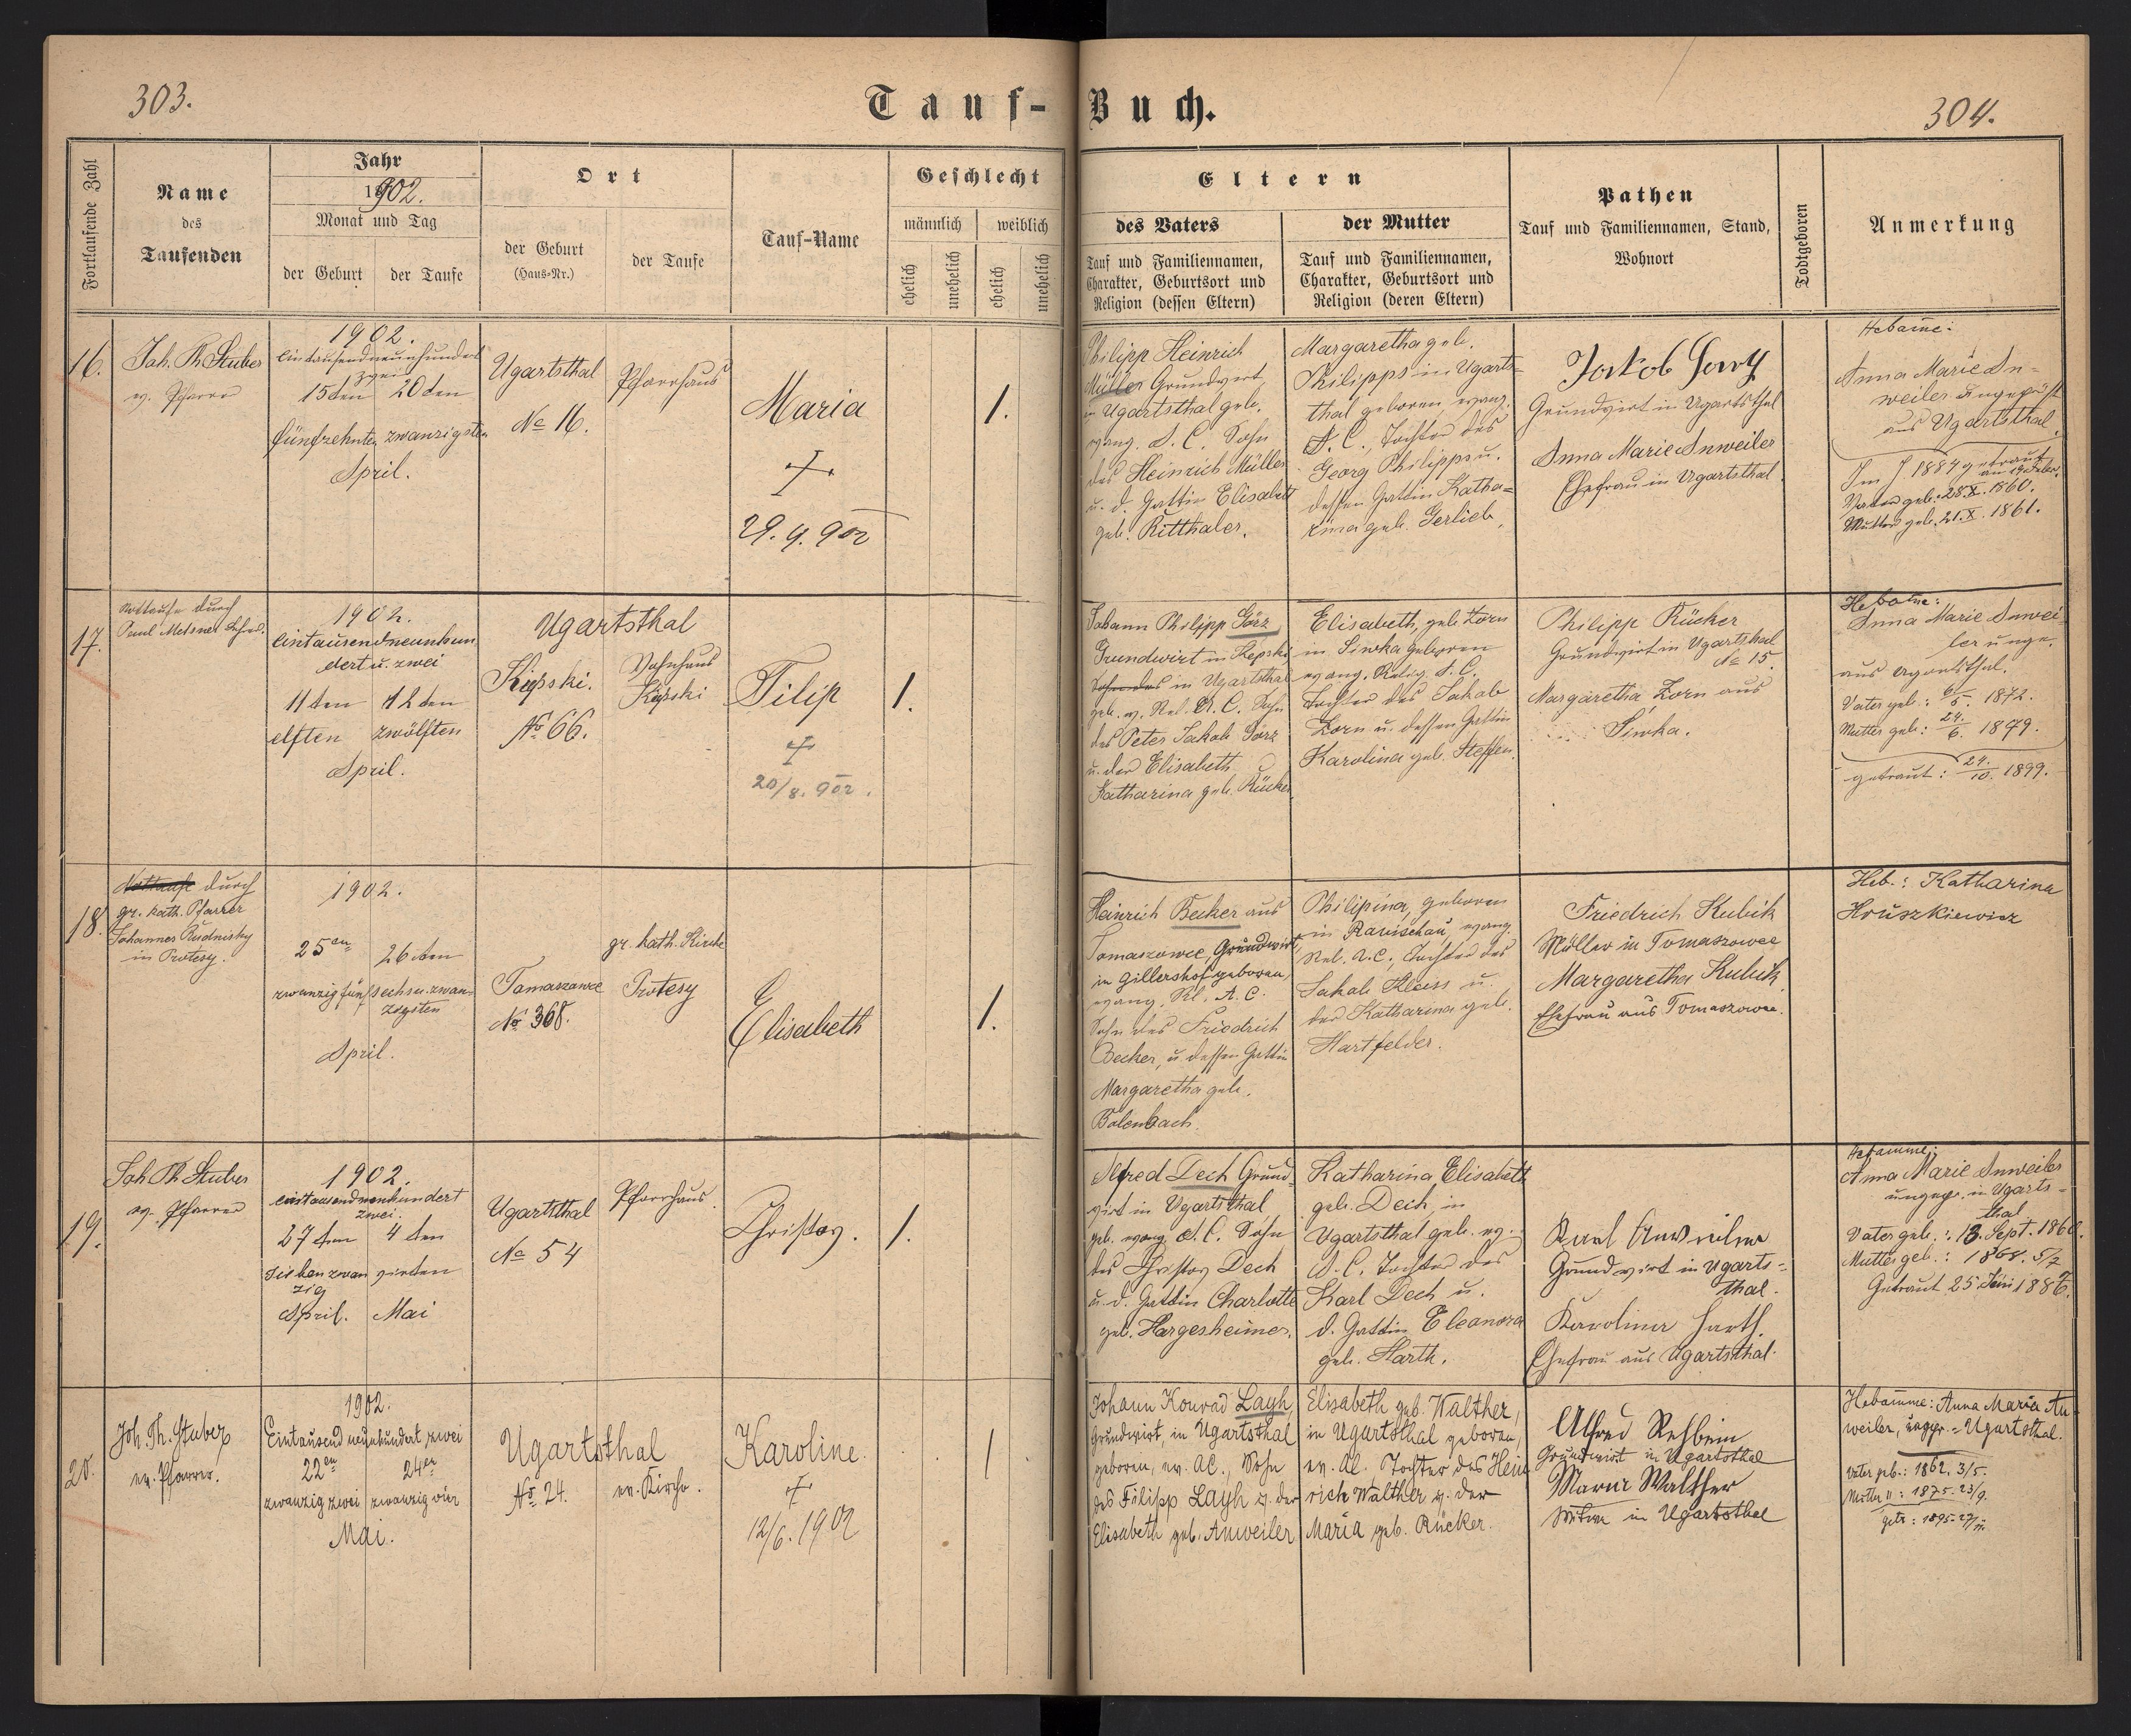 303.
Tauf-Buch.
304.
Fortlaufende Zahl
Name
des
Taufenden
Jahr
1902.
Monat und Tag
der Geburt
der Taufe
Ort
der Geburt
(Haus-Nr.)
der Taufe
Tauf-Name
Geschlecht
männlich
weiblich
ehelich
unehelich
ehelich
unehelich
Eltern
des Vaters
Tauf und Familiennamen,
Charakter, Geburtsort und
Religion (dessen Eltern)
der Mutter
Tauf und Familiennamen,
Charakter, Geburtsort und
Religion (deren Eltern)
Pathen
Tauf und Familiennamen, Stand,
Wohnort
Todtgeboren
Anmerkung
16.
Joh. Th. Stuber
ev. Pfarrer
1902.
Eintausendneunhundert
zwei
15ten 20ten
fünfzehnten zwanzigsten
April.
Ugartsthal
No 16.
Pfarrhaus
Maria
29. 4. 902
1.
Philipp Heinrich
Müller Grundwirt
in Ugartsthal geb.
evang. A. C. Sohn
des Heinrich Müller
u. d. Gattin Elisabeth
geb. Ritthaler.
Margaretha geb.
Philipps in Ugarts-
thal geboren, evang.
A. C., Tochter des
Georg Philipps u.
dessen Gattin Katha-
rina geb. Gerlieb.
Jakob
Grundwirt in Ugartsthal
Anna Marie Anweiler
Ehefrau in Ugartsthal.
Hebame:
Anna Marie An-
weiler ungeprüft
aus Ugartsthal.
Im J 1884 getraut
Vater geb. 28. X. 1860.
Mutter geb. 21. X. 1861.
17.
Nottaufe durch
Metsner
1902.
Eintausendneunhun
dert u. zwei
11ten 12ten
elften zwölften
April.
Ugartsthal
Kępski.
No 66.
Wohnhaus
Kępski
Filip
20/8. 902.
1.
Johann Philipp Görz
Grundwirt in Kępski
Sohn des in Ugartsthal
geb. ev. Rel. A. C. Sohn
des Peter Jakob Görz
u. der Elisabeth
Katharina geb. Rücker.
Elisabeth, geb. Zorn
in Siwka geboren
evang. Relig. A. C.
Tochter des Jakob
Zorn u. dessen Gattin
Karolina geb. Steffen.
Philipp Rücker
Grundwirt in Ugartsthal
No 15.
Margaretha Zorn aus
Siwka.
Hebame:
Anna Marie Anwei-
ler unge.
aus Ugartsthal.
Vater geb.: 6/5. 1872.
Mutter geb.: 24./6. 1879.
getraut: 24./10. 1899.
18.
Nottaufe durch
gr. kath. Pfarrer
Johannes Rudnisky
in Protesy.
1902.
25en 26ten
zwanzigfünf sechsu.zwan-
zigsten
April.
Tomaszowce
No 368.
gr. kath. Kirche
Protesy
Elisabeth
1.
Heinrich Becker aus
Tomaszowce, Grundwirt,
in Gillershof geboren,
evang. Rl. A. C.
Sohn des Friedrich
Becker, u. dessen Gattin
Margaretha geb.
Bolenbach.
Philipina, geboren
in Ranischau, evang.
Rel. A. C., Tochter des
Jakob Kleiss u.
der Katharina geb.
Hartfelder.
Friedrich Kubik
Müller in Tomaszowce
Margaretha Kubik,
Ehefrau aus Tomaszowce.
Heb.: Katharina
Hruszkiewicz
19.
Joh. Th. Stuber
ev. Pfarrer
1902.
eintausendneunhundert
zwei.
27ten 4ten
Siebenzwan vierten
zig
April. Mai
Ugartsthal
No 54
Pfarrhaus.
Christof.
1.
Alfred Dech Grund-
wirt in Ugartsthal
geb. evang. A. C. Sohn
des Christof Dech
u. d. Gattin Charlotte
geb. Hargesheimer.
Katharina Elisabeth
geb. Dech, in
Ugartsthal geb. ev.
A. C. Tochter des
Karl Dech u.
d. Gattin Eleonora
geb. Harth.
Karl Anweiler
Grundwirt in Ugarts-
thal.
Karolina Harth.
Ehefrau aus Ugartsthal.
Hebamme:
Anna Marie Anweiler
ungepr. in Ugarts-
thal
Vater geb.: 13. Sept. 1860.
Mutter geb.: 1868. 5/7
Getraut 25 Juni 1886.
20.
Joh. Th. Stuber
ev. Pfarrer.
1902.
Eintausend neunhundert zwei
22en 24er
zwanzig zwei zwanzig vier
Mai.
Ugartsthal
No 24. ev. Kirche.
Karoline.
12/6. 1902
1
Johann Konrad Layh,
Grundwirt, in Ugartsthal
geboren, ev. AC., Sohn
des Filipp Layh u. der
Elisabeth geb. Anweiler
Elisabeth geb. Walther,
in Ugartsthal geboren,
ev. AC. Tochter des Hein
rich Walther u. der
Maria geb. Rücker.
Alfred Rehbein
Grundwirt in Ugartsthal
Maria Walther
Witwe in Ugartsthal
Hebamme: Anna Maria An
weiler, ungepr. Ugartsthal.
Vater geb.: 1862. 3/5.
Mutter ": 1875. 23/9.
getr: 1895. 27/